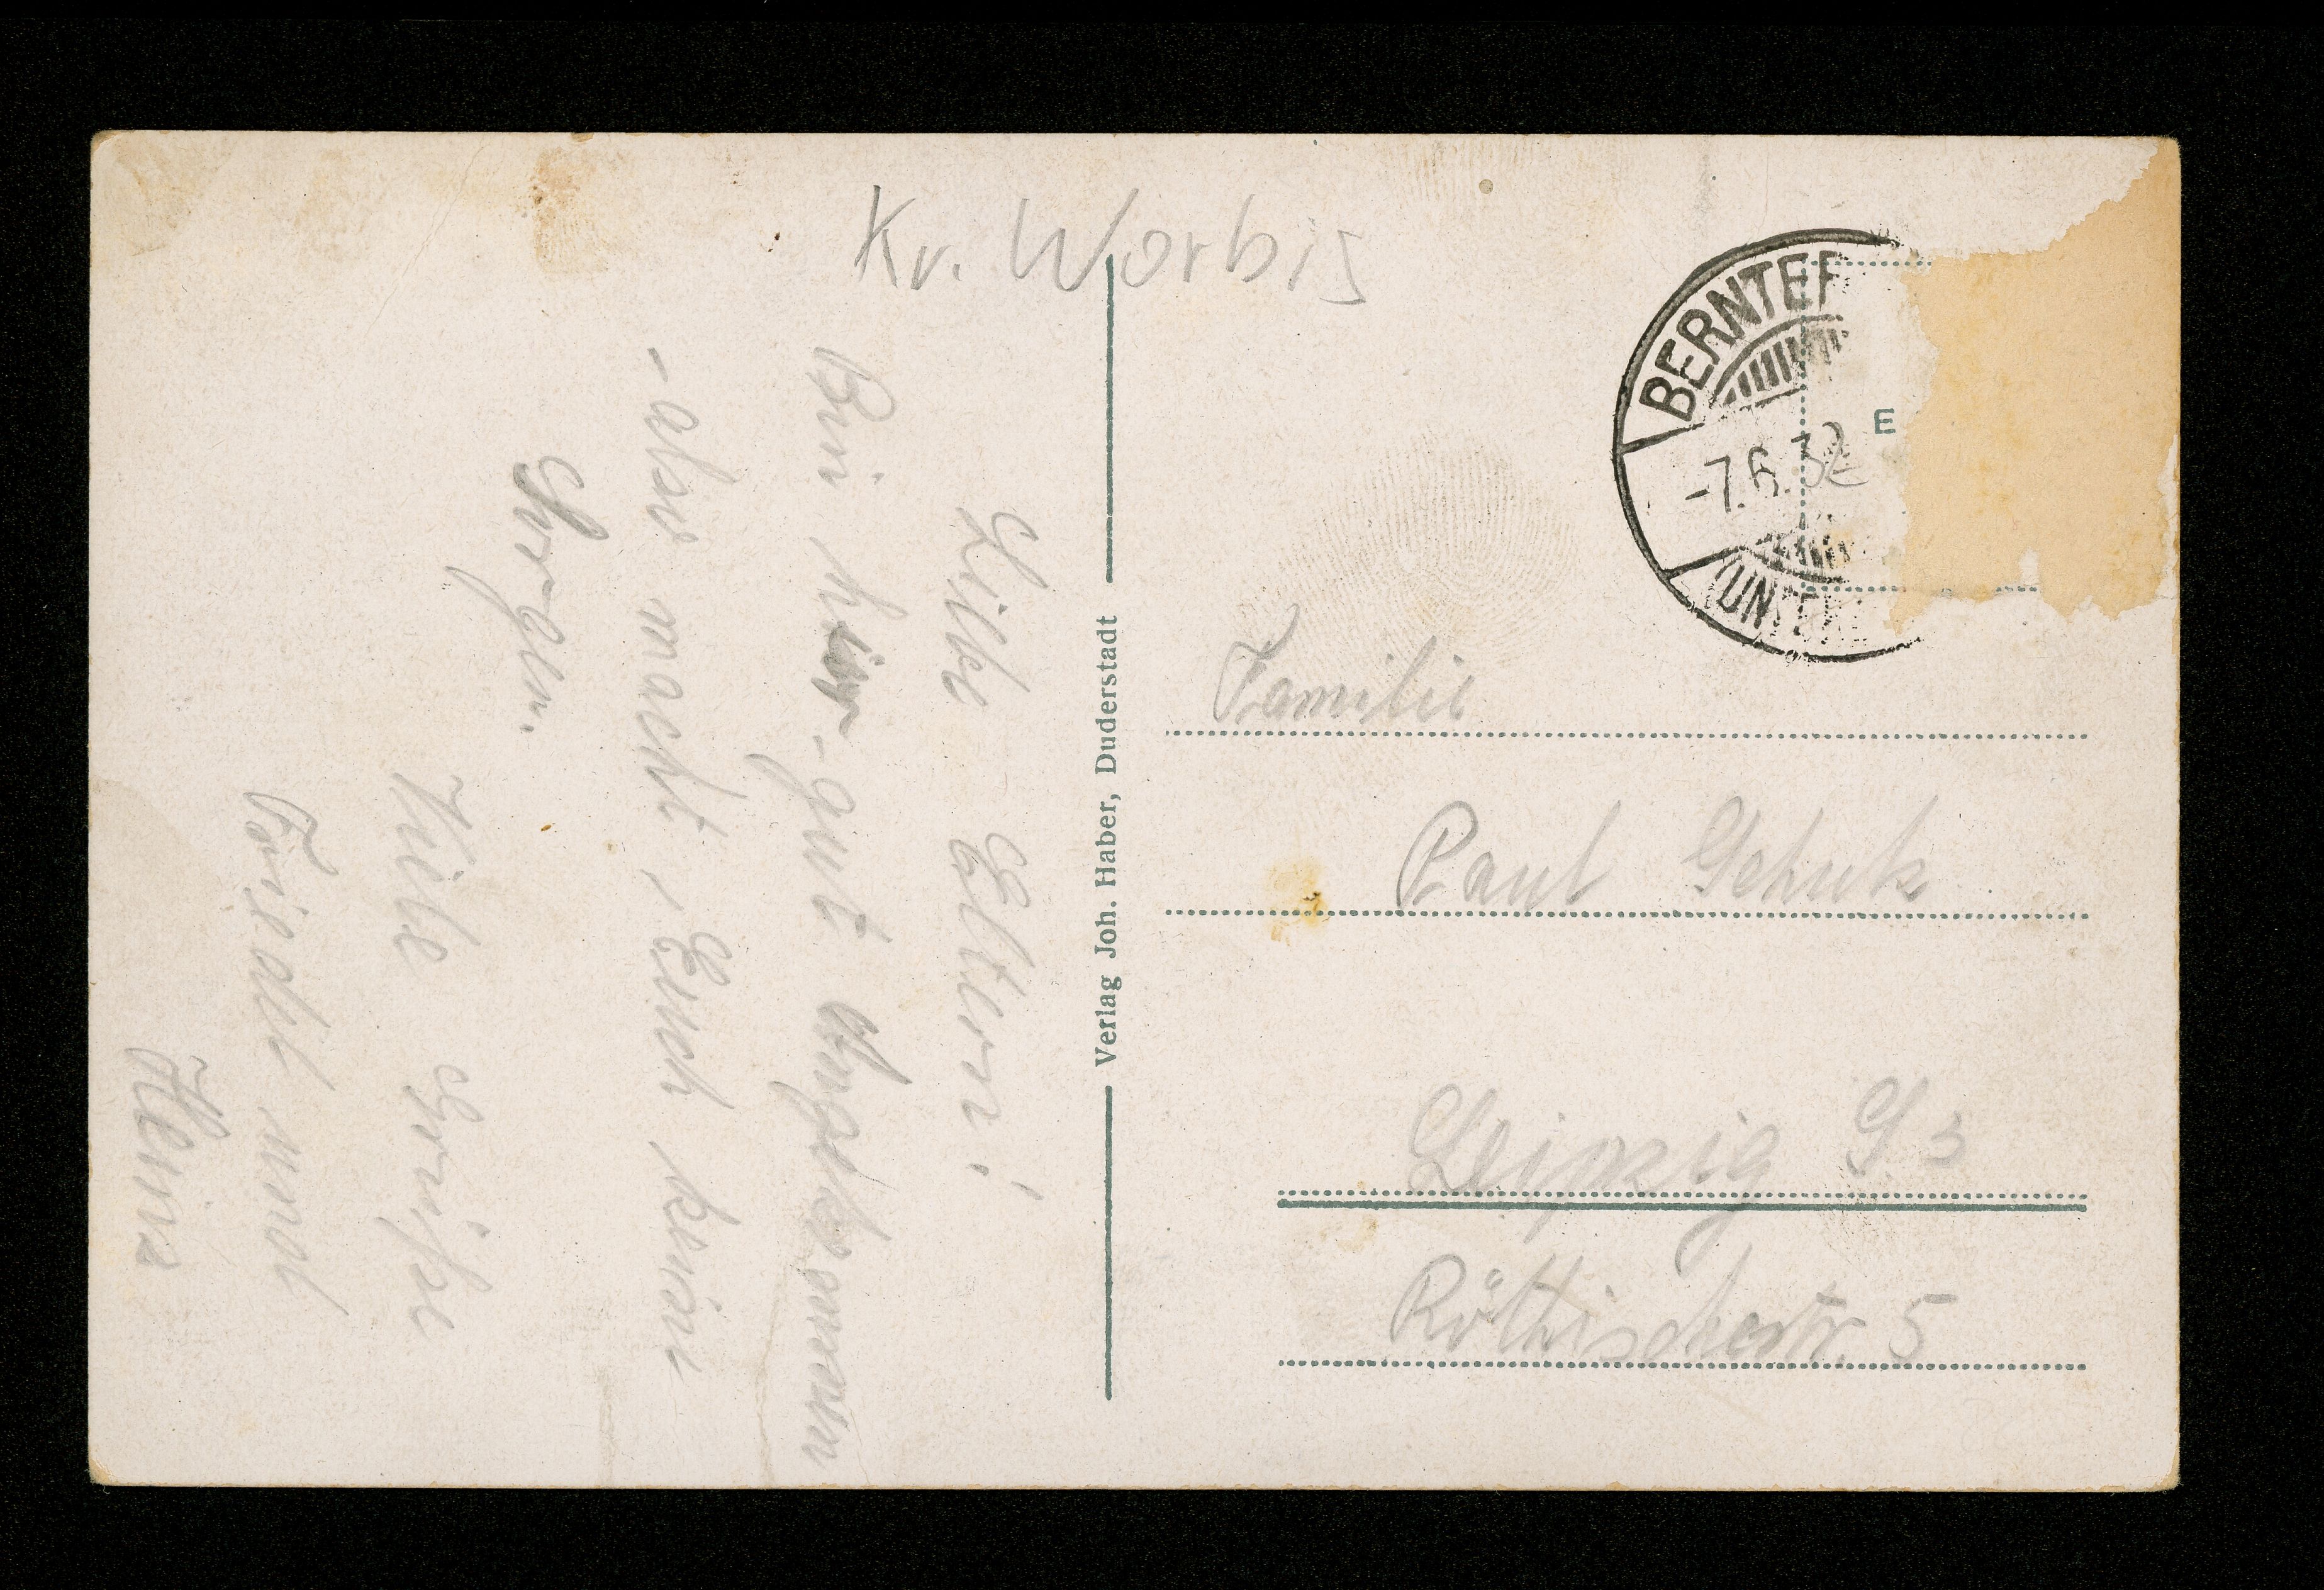 Kr. Worbis
Liebe Eltern!
Bin hier gut angekommen
- also macht Euch keine
Sorgen.
Viele Grüße
Friedel und
Heinz
Verlag Joh. Haber, Duderstadt
BERNTER
-7.6.32
(UNTER
E
Familie
Paul Schulz
Leipzig S3
Röthischestr. 5